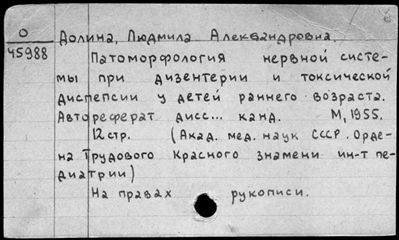 О
45988
Долина, Людмила Александровна.
Патоморфология нервной систе-
мы при дизентерии и токсической
диспепсии у детей раннего возраста.
Автореферат дисс... канд. М, 1955.
12 стр. (Акад. мед. наук СССР. Орде-
на Трудового Красного знамени ин-т пе-
диатрии)
На правах рукописи.